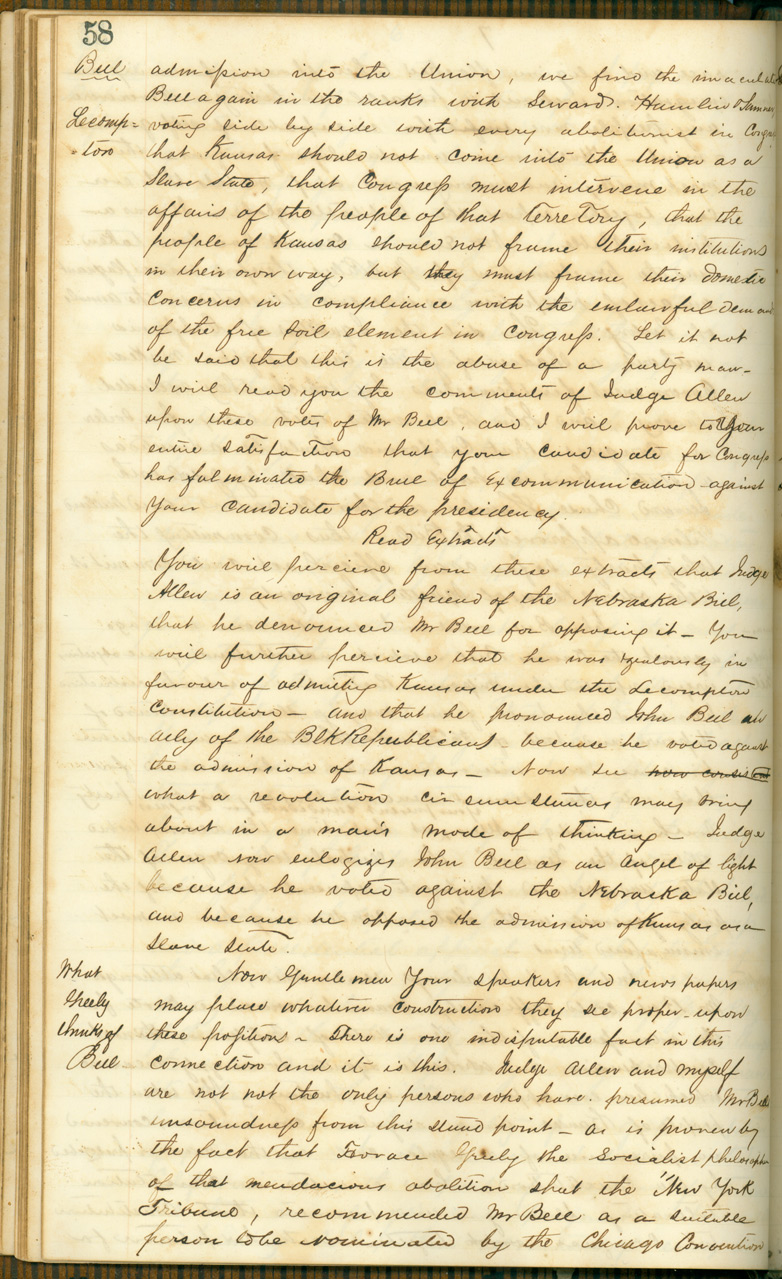 58
Bell
admission into the Union, we find the immaculate
Bell again in the ranks with Seward. Hamlin & Sumner
Lecomp=
voting side by side with every abolitionist in Congress
=ton
that Kansas should not come into the Union as a
Slave State, that Congress must intervene in the
affairs of the people of that Terretory, that the
people of Kansas should not frame their institutions
in their own way, but they must frame their domestic
Concerns in compliance with the unlawful demand
of the free soil element in Congress. Let it not
be said that this is the abuse of a party man_
I will read you the comments of Judge Allen
upon these votes of Mr Bell, and I will prove to your
entire satisfaction that your candidate for Congress
has fulminated the Bull of Excommunication against
Your candidate for the presidency.
Read Extracts
You will percieve from these extracts that Judge
Allen is an original friend of the Nebraska Bill,
that he denounced Mr Bell for opposing it _ You
will further percieve that he was zealously in
favour of admitting Kansas under the Lecompton
Constitution _ and that he pronounced John Bell an
ally of the Blk Republicans because he voted against
the admission of Kansas _ Now see how consistent
what a revolution circumstances may bring
about in a man's mode of thinking _ Judge
Allen now eulogizes John Bell as an Angel of light
because he voted against the Nebraska Bill,
and because he opposed the admission of Kansas as a
Slave State.
What
Greely
thinks of
Bell
Now Gentlemen Your speakers and newspapers
may place whatever construction they see proper upon
these positions _ There is one indisputable fact in this
connection and it is this. Judge Allen and myself
are not not the only persons who have presumed Mr Bells
unsoundness from this stand point _ as is proven by
the fact that Horace Greely the Socialist philosopher
of that mendacious abolition sheet the "New York
Tribune, recommended Mr Bell as a suitable
person to be nominated by the Chicago Convention